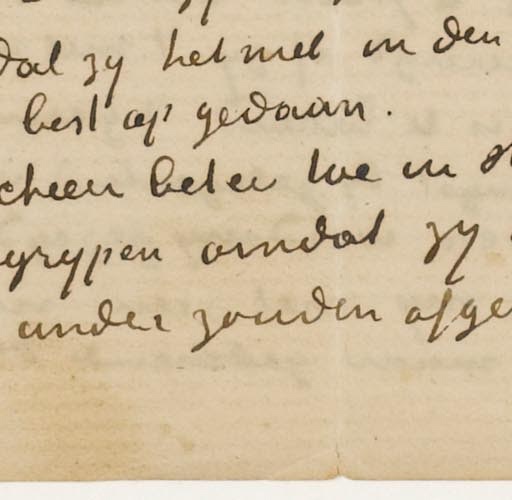 dat zy het met in den
best op gedaan.
scheen beter toe in
grypen omdat zy
ander zouden afge